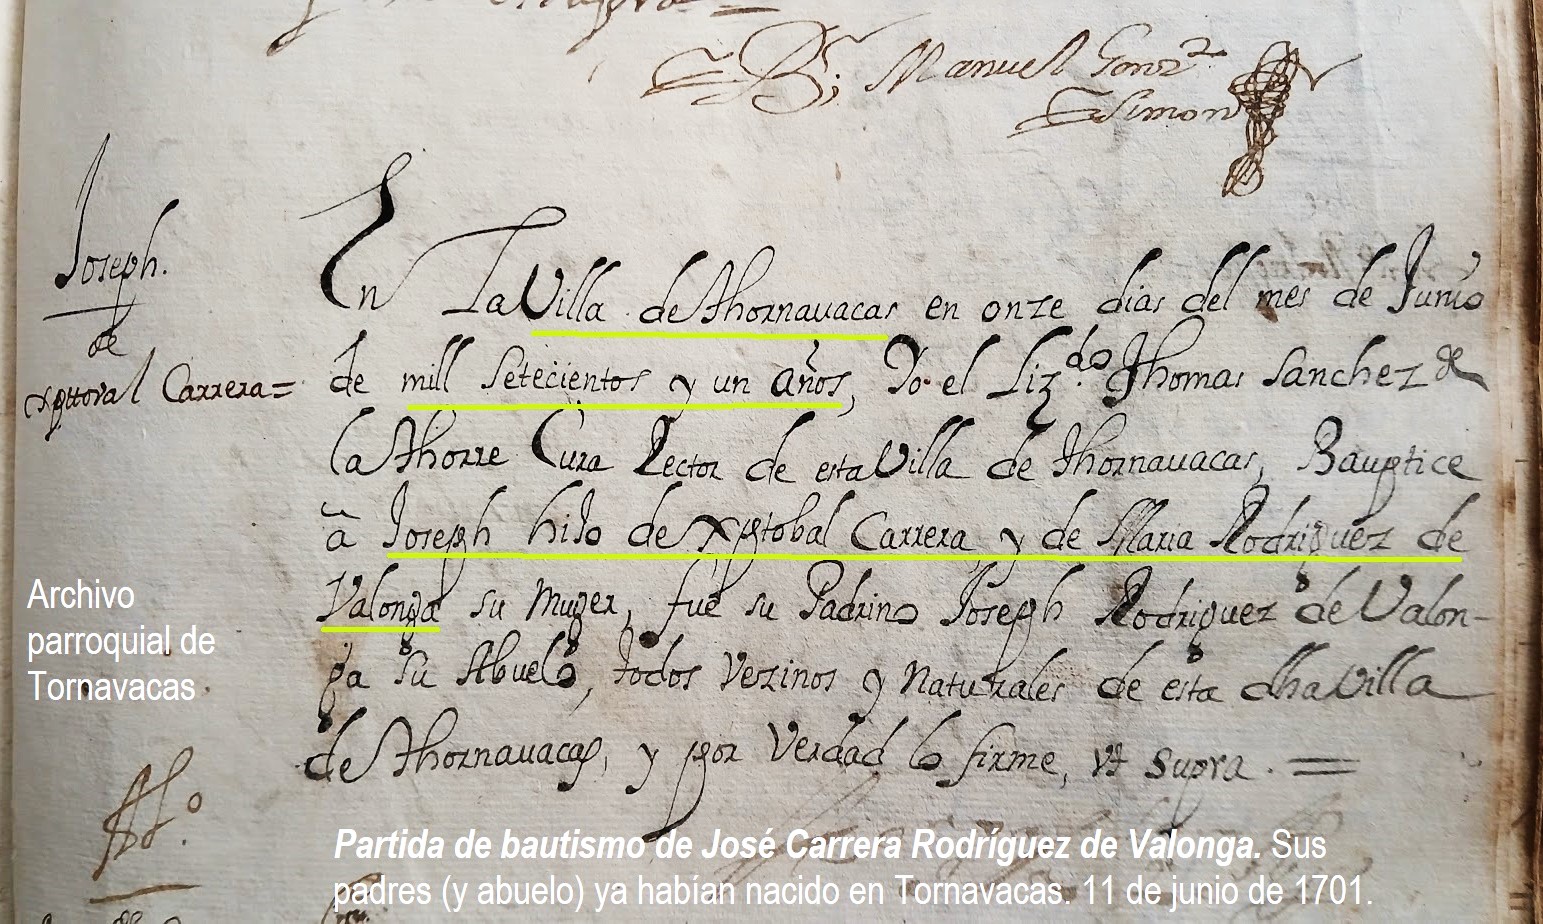 Br. Manuel Gonz²
Simon
Joseph.
de
Xpttoval Carrera =
En La Villa de Thornauacas en onze dias del mes de Junio
de mill setecientos y un años, Yo el Lizdo. Thomas Sanchez de
la Thorre Cura Rector de esta Villa de Thornauacas, Bauptice
â Joseph hiJo de Xptobal Carrera y de Maria Rodriguez de
Valonga su Muger, fue su Padrino Joseph Rodriguez de Valon-
ga su Abuelo, todos Vezinos y Naturales de esta dha Villa
de Thornauacas, y por Verdad lo firme, Vt supra. =
Archivo
parroquial de
Tornavacas
Partida de bautismo de José Carrera Rodríguez de Valonga. Sus
padres (y abuelo) ya habían nacido en Tornavacas. 11 de junio de 1701.